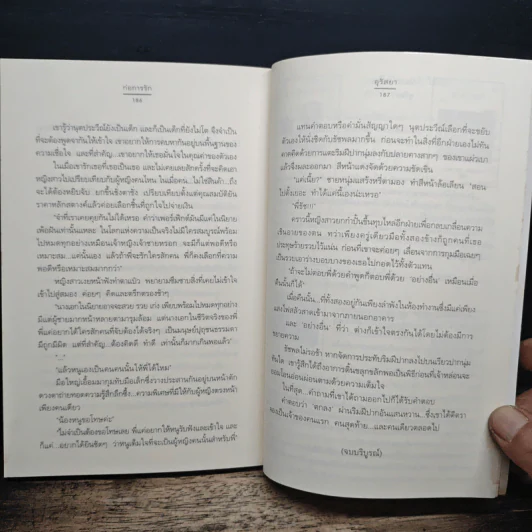 ก่อการรัก
186
เขารู้ว่านุตประวีณ์ยังเป็นเด็ก และก็เป็นเด็กที่ยังไม่โต จึงจำเป็น
ที่จะต้องพูดจากันให้เข้าใจ เขาอยากให้การคบหากันอยู่บนพื้นฐานของ
ความเชื่อใจ และที่สำคัญ...เขาอยากให้เธอมั่นใจในคุณค่าของตัวเอง
ในเมื่อเขารักเธอที่เธอเป็นเธอ และไม่เคยเลยสักครั้งที่จะคิดเอา
หญิงสาวไปเปรียบเทียบกับผู้หญิงคนไหน ในเมื่อคน...ไม่ใช่สินค้า...ถึง
จะได้ต้องหยิบจับ ยกขึ้นชั่งตาชั่ง เปรียบเทียบตั้งแต่คุณสมบัติยัน
ราคาหลักสตางค์แล้วค่อยเลือกชิ้นที่ถูกใจไปจ่ายเงิน
"จำที่เราเคยคุยกันไม่ได้เหรอ คำว่าเพอร์เฟ็กต์มันมีแค่ในนิยาย
เพ้อฝันเท่านั้นแหละ ในโลกแห่งความเป็นจริงไม่มีใครสมบูรณ์พร้อม
ไปหมดทุกอย่างเหมือนเจ้าหญิงเจ้าชายหรอก จะมีก็แต่พอดีหรือ
เหมาะสม...แค่นั้นเอง แล้วถ้าพี่จะรักใครสักคน พี่ก็คงเลือกที่ความ
พอดีหรือเหมาะสมมากกว่า"
หญิงสาวเงยหน้าฟังทำตาแป๋ว พยายามซึมซาบสิ่งที่เคยไม่เข้าใจ
เข้าไปสู่สมอง ค่อยๆ คิดและตริตรองช้าๆ
"นางเอกในนิยายอาจจะสวย รวย เก่ง เพียบพร้อมไปหมดทุกอย่าง
มีแต่ผู้ชายมากหน้าหลายตามารุมล้อม แต่นางเอกในชีวิตจริงของพี่
พี่แค่อยากได้ใครสักคนที่จับต้องได้จริงๆ เป็นมนุษย์ปุถุชนธรรมดา
มีถูกมีผิด แต่ที่สำคัญ...ต้องคิดดี ทำดี เท่านั้นก็มากเกินพอแล้ว"
"..."
"แล้วหนูเลงเป็นคนคนนั้นให้พี่ได้ไหม"
มือใหญ่เอื้อมมากุมทับมือเล็กซึ่งวางประสานกันอยู่บนหน้าตัก
ดวงตาถ่ายทอดความรู้สึกลึกซึ้ง...ความพิเศษที่มีให้กับผู้หญิงตรงหน้า
เพียงคนเดียว
"น้องหนูขอโทษค่ะ"
"ไม่จำเป็นต้องขอโทษเลย พี่แค่อยากให้หนูรับฟังและเข้าใจ และ
ก็แค่...อยากได้ยินชัดๆ ว่าหนูเต็มใจที่จะเป็นผู้หญิงคนนั้นสำหรับพี่"
อุริศยา
187
แทนคำตอบหรือคำมั่นสัญญาใดๆ นุตประวีณ์เลือกที่จะขยับ
ตัวเองให้นั่งชิดกับรัชพลมากขึ้น ก่อนจะทำในสิ่งที่อีกฝ่ายเองไม่ทัน
คาดคิดด้วยการแตะริมฝีปากนุ่มลงกับปลายคางสากๆ ของเขาแผ่วเบา
แล้วจึงผละออกมา สีหน้าแดงจัดด้วยความขัดเขิน
"แค่เนี้ย?" ชายหนุ่มแสร้งหรี่ตามอง ทำสีหน้าล้อเลียน "สอน
ไปตั้งเยอะ ทำได้แค่นี้เองน่ะเหรอ"
"พี่รัช!"
คราวนี้หญิงสาวยกกำปั้นขึ้นทุบไหล่อีกฝ่ายเพื่อกลบเกลื่อนความ
เขินอายของตน ทว่าเพียงครู่เดียวมือทั้งสองข้างก็ถูกคนที่เธอ
ประทุษร้ายรวบไว้แน่น ก่อนที่เขาจะค่อยๆ เลื่อนจากการกุมมือเฉยๆ
เป็นรวบเอาร่างบอบบางของเธอไปกอดไว้ทั้งตัวแทน
"ถ้าจะไม่ตอบพี่ด้วยคำพูดก็ตอบพี่ด้วย 'อย่างอื่น' เหมือนเมื่อ
คืนนั้นก็ได้"
เมื่อคืนนั้น...ที่ทั้งสองอยู่กันเพียงลำพังในห้องทำงานซึ่งมีแค่เพียง
แสงไฟสลัวสาดเข้ามาจากภายนอกอาคาร
และ 'อย่างอื่น' ที่ว่า ต่างก็เข้าใจตรงกันได้โดยไม่ต้องมีการ
ขยายความ
รัชพลไม่รอช้า หากจัดการประทับริมฝีปากลงไปบนเรียวปากนุ่ม
ทันใด เขารู้สึกได้ถึงอาการตื่นขลุกขลักพอเป็นพิธีก่อนที่เจ้าหล่อนจะ
ยอมโอนอ่อนผ่อนตามด้วยความเต็มใจ
ในที่สุด...คำถามที่เขาได้ถามออกไปก็ได้รับคำตอบ
คำตอบว่า 'ตกลง' ผ่านริมฝีปากอันแสนหวาน...ซึ่งเขาได้ตีตรา
จองเป็นเจ้าของคนแรก คนสุดท้าย...และคนเดียวตลอดไป
(จบบริบูรณ์)